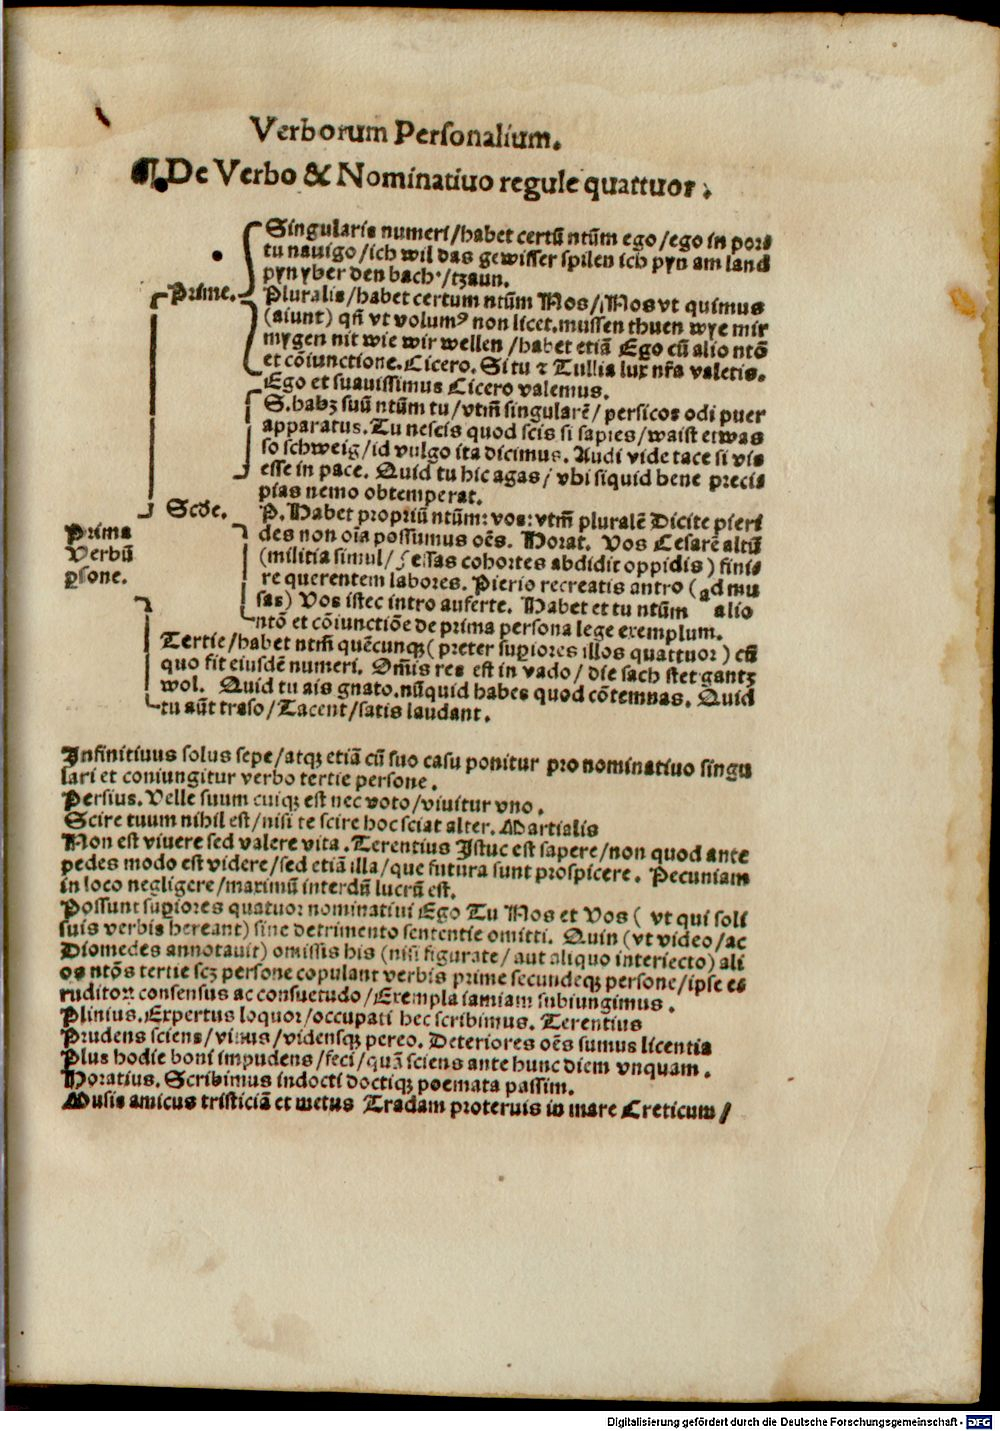 Verborum Personalium.
¶ De Verbo & Nominatiuo regule quattuor.
Singularis numeri/habet certū ntūm ego/ego in por⸗
tu nauigo/ich wil das gewisser spilen ich pyn am land
pyn yber den bach/tzaun.
Prime.
Pluralis/habet certum ntūm Nos/Nos vt quimus
(aiunt) qñ vt volumꝰ non licet.mussen thuen wye mir
mygen nit wie wir wellen/habet etiā Ego cū alio ntō
et cōiunctione.Cicero. Si tu ⁊ Tullia lux nr̄a valetis.
Ego et suauissimus Cicero valemus.
S.habꝫ suū ntūm tu/vtm̄ singularē/persicos odi puer
apparatus.Tu nescis quod scis si sapies/waist etwas
so schweig/id vulgo ita dicimus. Audi vide tace si vis
esse in pace. Quid tu hic agas/vbi siquid bene preci⸗
pias nemo obtemperat.
Scd̄e.
P.Habet propriū ntūm:vos:vtm̄ pluralē Dicite pieri
des non oīa possumus oēs. Horat. Vos Cesarē altū
(militia simul/ fessas cohortes abdidit oppidis) fini⸗
re querentem labores. Pierio recreatis antro (ad mu
sas) Vos istec intro auferte. Habet et tu ntūm alio
ntō et cōiunctiōe de prima persona lege exemplum.
Prima
Verbū
ꝑsone.
Tertie/habet ntm̄ quēcunqꝫ (preter suꝑiores illos quattuor) cū
quo fit eiusdē numeri. Om̄is res est in vado/die sach stet gantz
wol. Quid tu ais gnato.nūquid habes quod cōtemnas. Quid
tu aūt traso/Tacent/satis laudant.
Infinitiuus solus sepe/atqꝫ etiā cū suo casu ponitur pro nominatiuo singu
lari et coniungitur verbo tertie persone.
Persius.Velle suum cuiqꝫ est nec voto/viuitur vno.
Scire tuum nihil est/nisi te scire hoc sciat alter. Martialis
Non est viuere sed valere vita.Terentius Istuc est sapere/non quod ante
pedes modo est videre/sed etiā illa/que futura sunt prospicere. Pecuniam
in loco negligere/maximū interdū lucrū est.
Possunt suꝑiores quatuor nominatiui Ego Tu Nos et Vos ( vt qui soli
suis verbis hereant) sine detrimento sententie omitti. Quin (vt video/ac
Diomedes annotauit) omissis his (nisi figurate/aut aliquo interiecto) ali
os ntōs tertie scꝫ persone copulant verbis prime secundeqꝫ persone/ipse e⸗
ruditoꝝ consensus ac consuetudo/Exempla iamiam subiungimus.
Plinius.Expertus loquor/occupati hec scribimus. Terentius
Prudens sciens/viuus/vidensqꝫ pereo. Deteriores oēs sumus licentia
Plus hodie boni impudens/feci/quā sciens ante hunc diem vnquam.
Horatius. Scribimus indocti doctiqꝫ poemata passim.
Musis amicus tristiciā et metus Tradam proteruis in mare Creticum/
Digitalisierung gefördert durch die Deutsche Forschungsgemeinschaft - DFG